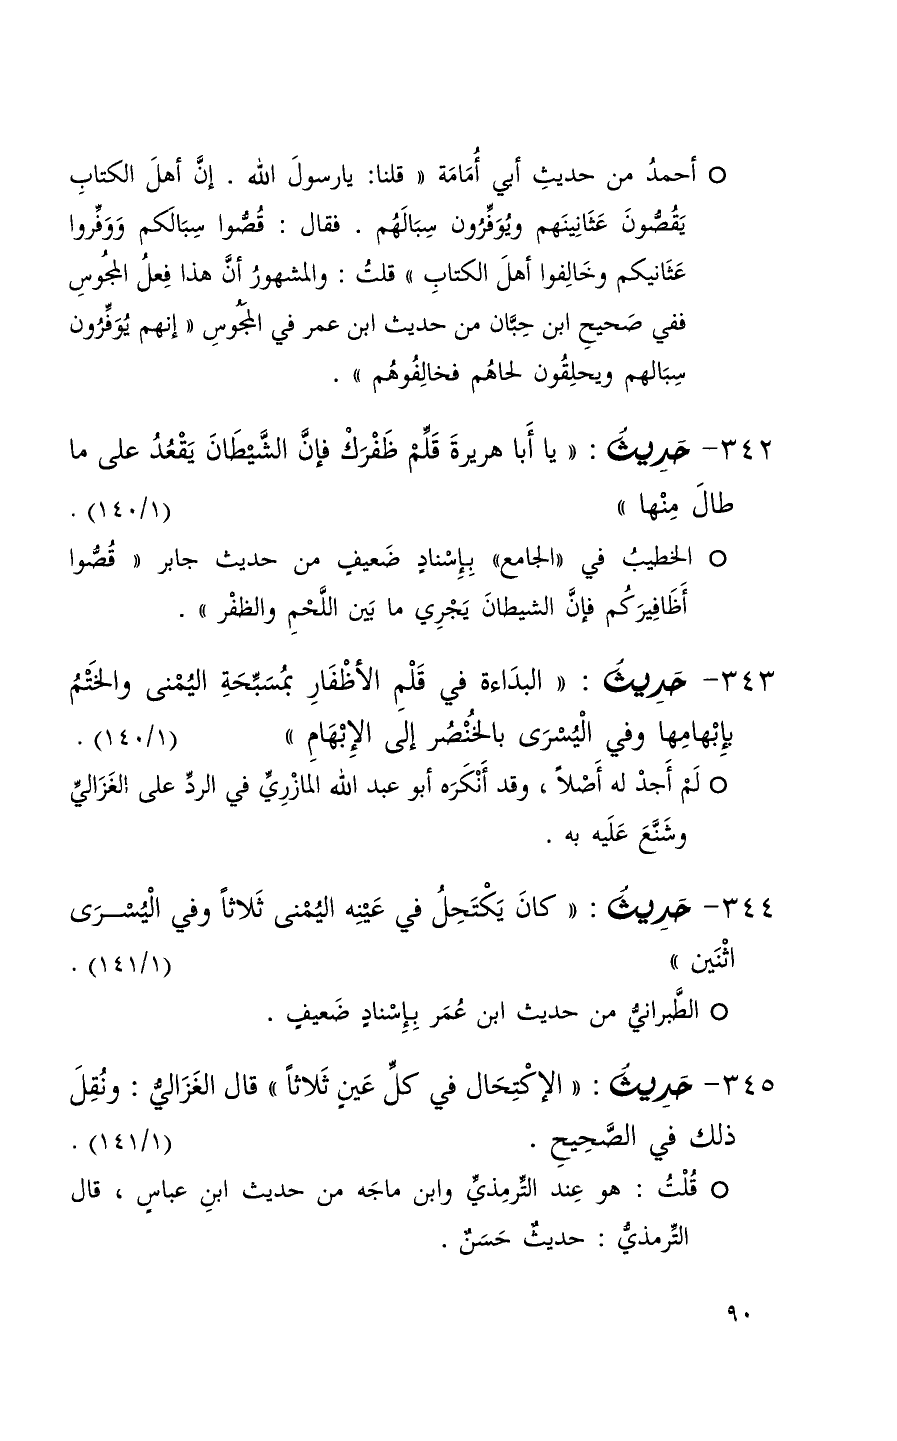 ○ أحمدُ من حديثِ أبي أُمَامَة « قلنا: يارسولَ الله . إنَّ أهلَ الكتابِ
يَقُصُّونَ عَثَانِينَهم ويُوَفِّرُون سِبَالَهُم . فقال : قُصُّوا سِبَالَكم وَوَفِّروا
عَثَانيكم وخَالِفوا أهلَ الكتابِ » قلتُ : والمشهورُ أنَّ هذا فِعلُ المجُوسِ
ففي صَحيحِ ابن حِبَّان من حديث ابن عمر في المجُوسِ « إنهم يُوَفِّرُون
سِبَالهم ويحلِقُون لحاهُم فخالِفُوهُم » .
٣٤٢- حَدِيثُ : « يا أَبا هريرةَ قَلِّمْ ظَفْرَكْ فإنَّ الشَّيْطَانَ يَقْعُدُ على ما
طالَ مِنْها » (١٤٠/١) .
○ الخطيبُ في «الجامع» بِإِسْنادٍ ضَعيفٍ من حديث جابر « قُصُّوا
أَظَافِيرَكُم فإنَّ الشيطانَ يَجْرِي ما بَين اللَّحْمِ والظفْر » .
٣٤٣- حَدِيثُ : « البدَاءة في قَلْمِ الأظْفَارِ بمُسَبِّحَةِ اليُمْنى والخَتْمُ
بِإبْهامِها وفي الْيُسْرَى بالخُنْصُر إلى الإبْهَامِ » (١٤٠/١) .
○ لَمْ أَجدْ له أَصْلاً ، وقد أَنْكَرَه أبو عبد الله المازْرِيِّ في الردِّ على الغَزَاليِّ
وشَنَّعَ عَلَيه به .
٣٤٤- حَدِيثُ : « كانَ يَكْتَحِلُ في عَيْنِه اليُمْنى ثَلاثاً وفي الْيُسْرَى
اثْنَين » (١٤١/١) .
○ الطَّبرانيُّ من حديث ابن عُمَر بِإِسْنادٍ ضَعيفٍ .
٣٤٥- حَدِيثُ : « الإكْتِحَال في كلِّ عَينٍ ثَلاثاً » قال الغَزَاليُّ : ونُقِلَ
ذلك في الصَّحِيحِ . (١٤١/١) .
○ قُلْتُ : هو عِند التِّرمِذيِّ وابن ماجَه من حديث ابنِ عباسٍ ، قال
التِّرمذيُّ : حديثٌ حَسَنٌ .
٩٠